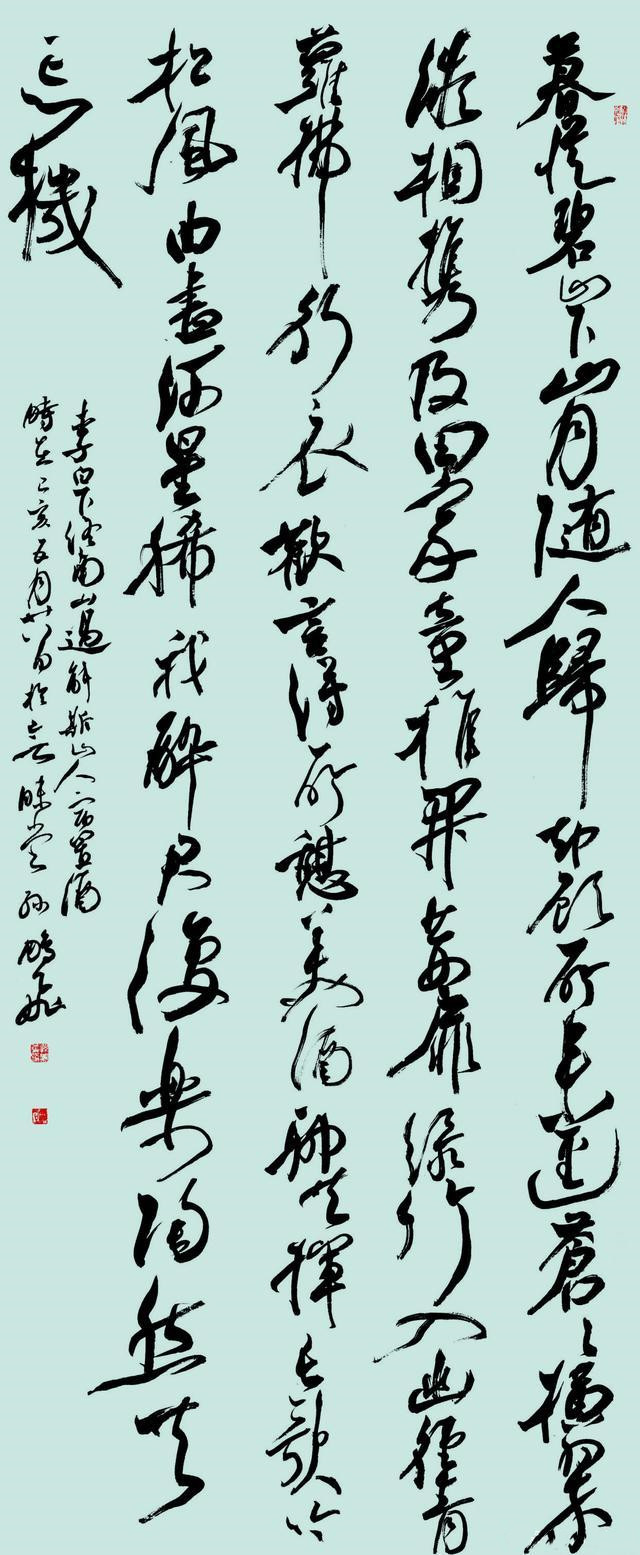 暮從碧山下山月随人歸却顧所来逕蒼〻横翠
微相携及田家童稚開荊扉緑竹入幽徑青
蘿拂行衣歡言得所憩美酒聊共揮長歌吟
松風曲盡河星稀我醉君復樂陶然共
忘機
李白下終南山過斛斯山人宿置酒
時在己亥五月廿八日於昧堂孫鵬飛